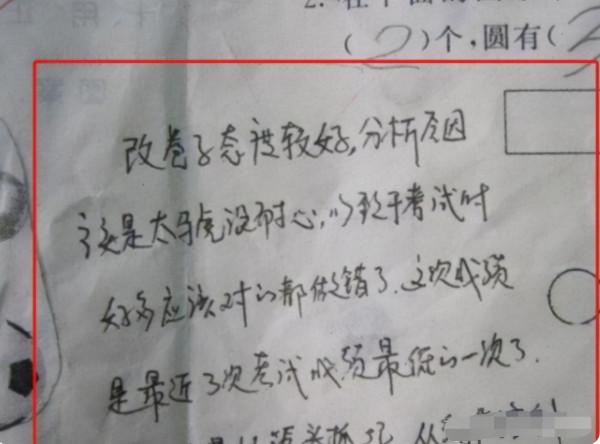 )个,圆有(
改卷子态度较好,分析原因
该是太马虎没耐心,以致于考试时
好多应该对的都做错了.这次成绩
是最近3次考试成绩最低的一次了.